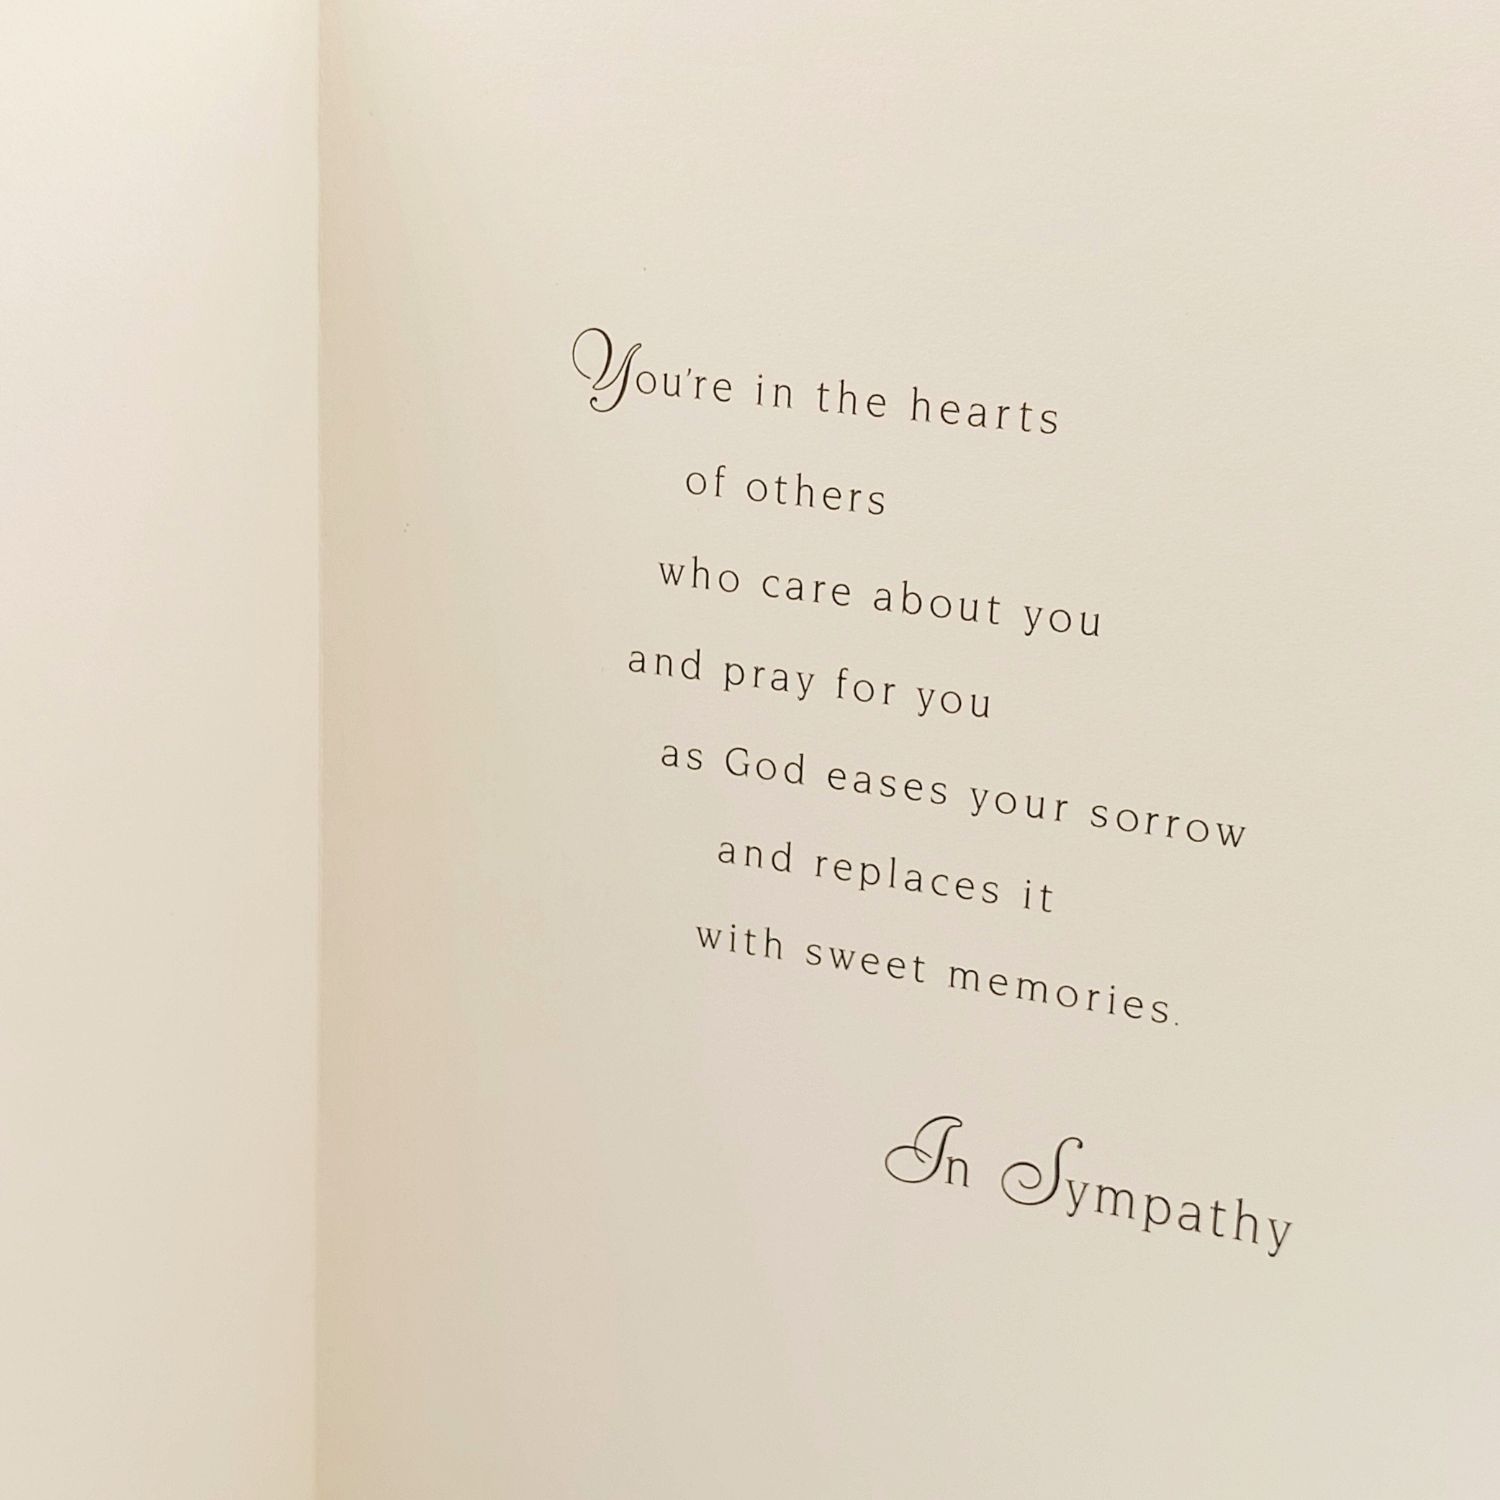 You're in the hearts
of others
who care about you
and pray for you
as God eases your sorrow
and replaces it
with sweet memories.
In Sympathy